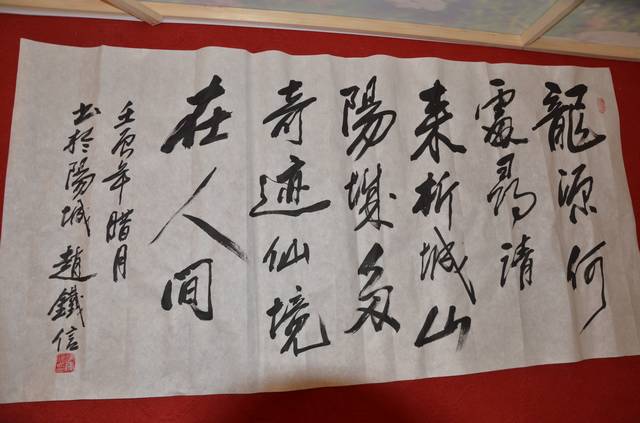 龍源何
處尋請
来析城山
陽城多
奇迹仙境
在人間
壬辰年腊月
书於陽城 趙鐵信